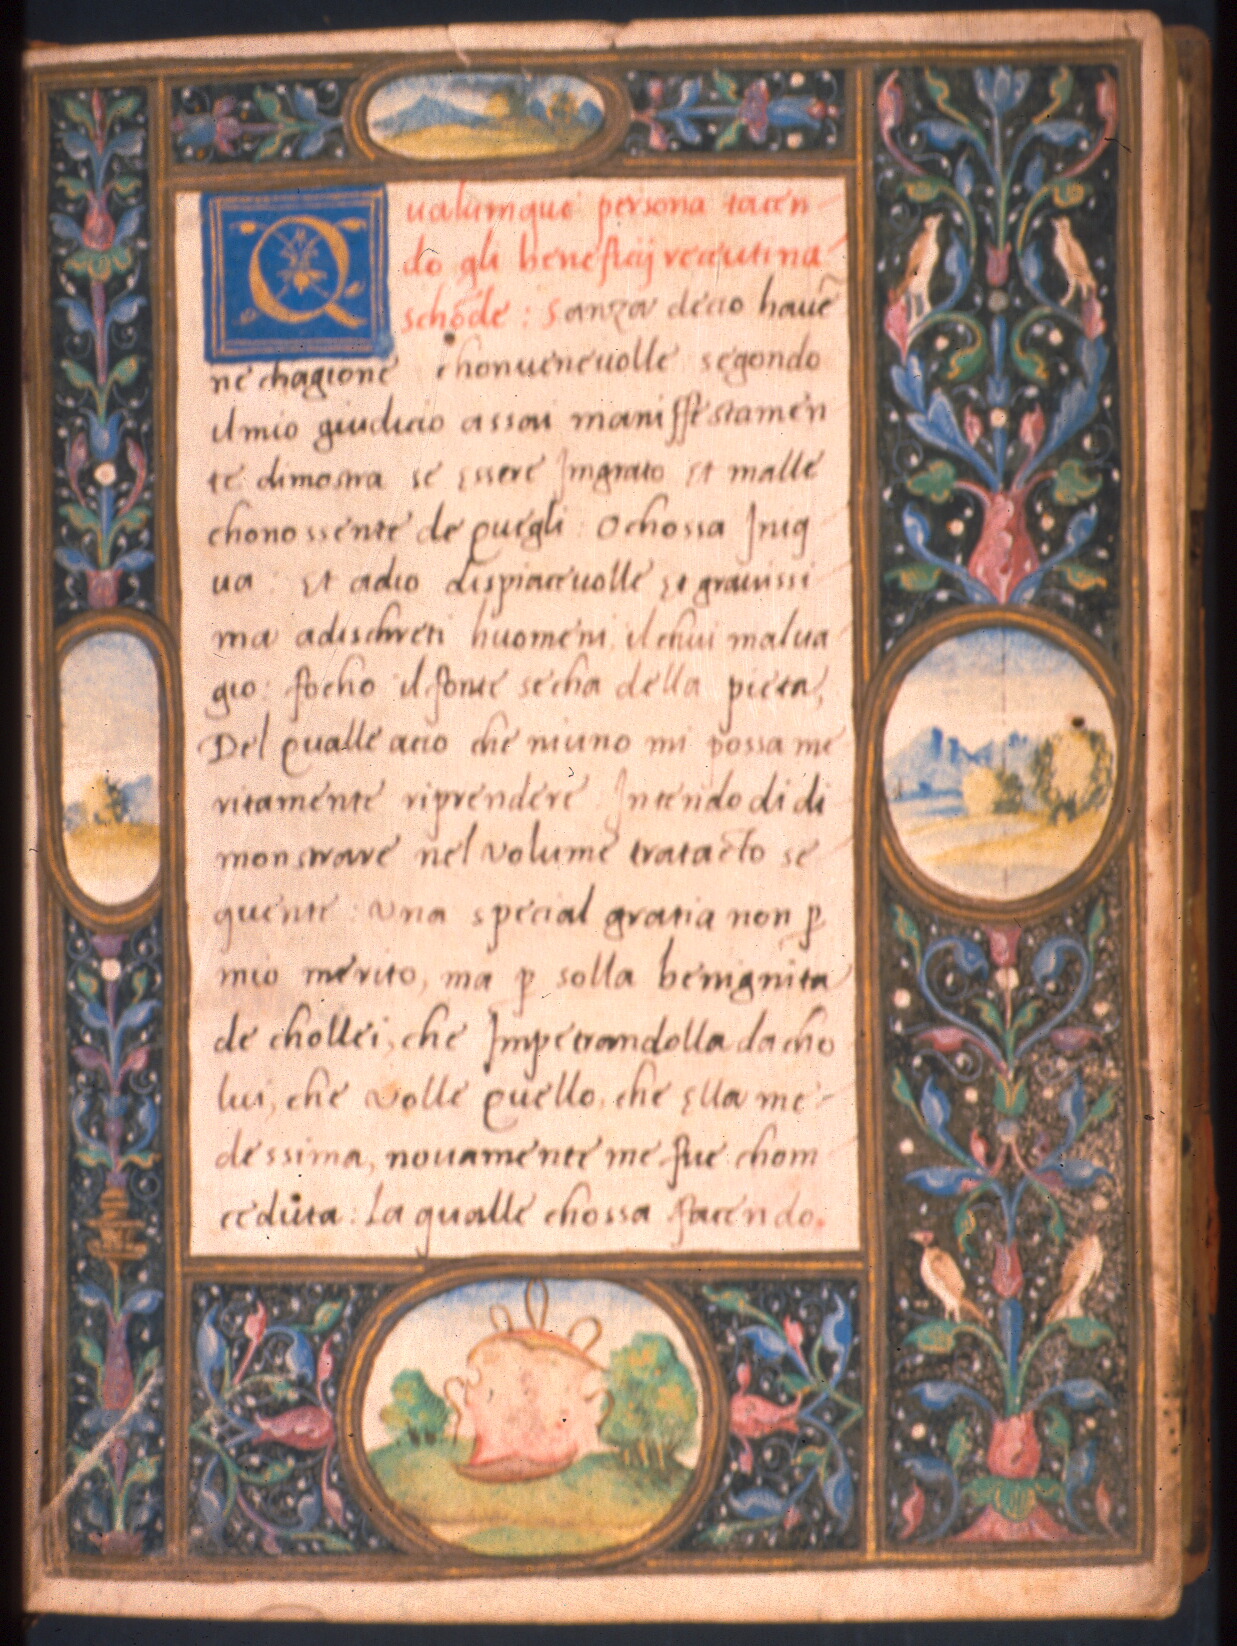 Qualumque persona tacen
do gli beneficij receuti na
schōde : Sanza decio hauē
ne chagione chonueneuolle segondo
il mio giudicio assai maniffestamen
te dimostra se Essere Ingrato Et malle
chonossente de quegli : O chossa Iniq
ua : Et adio dispiaceuolle Et grauissi
ma adischreti huomeni, il chui malua
gio : focho il fonte secha della pieta,
Del qualle acio che niuno mi possa me
ritamente riprendere Intendo di di
monstrare nel volume tratacto se
quente : Una special gratia non p̱
mio merito, ma p̱ solla benignita
de chollei, che Impetrandolla da cho
lui, che volle quello, che Ella me-
dessima, nouamente me fue chom
ceduta : La qualle chossa facendo.